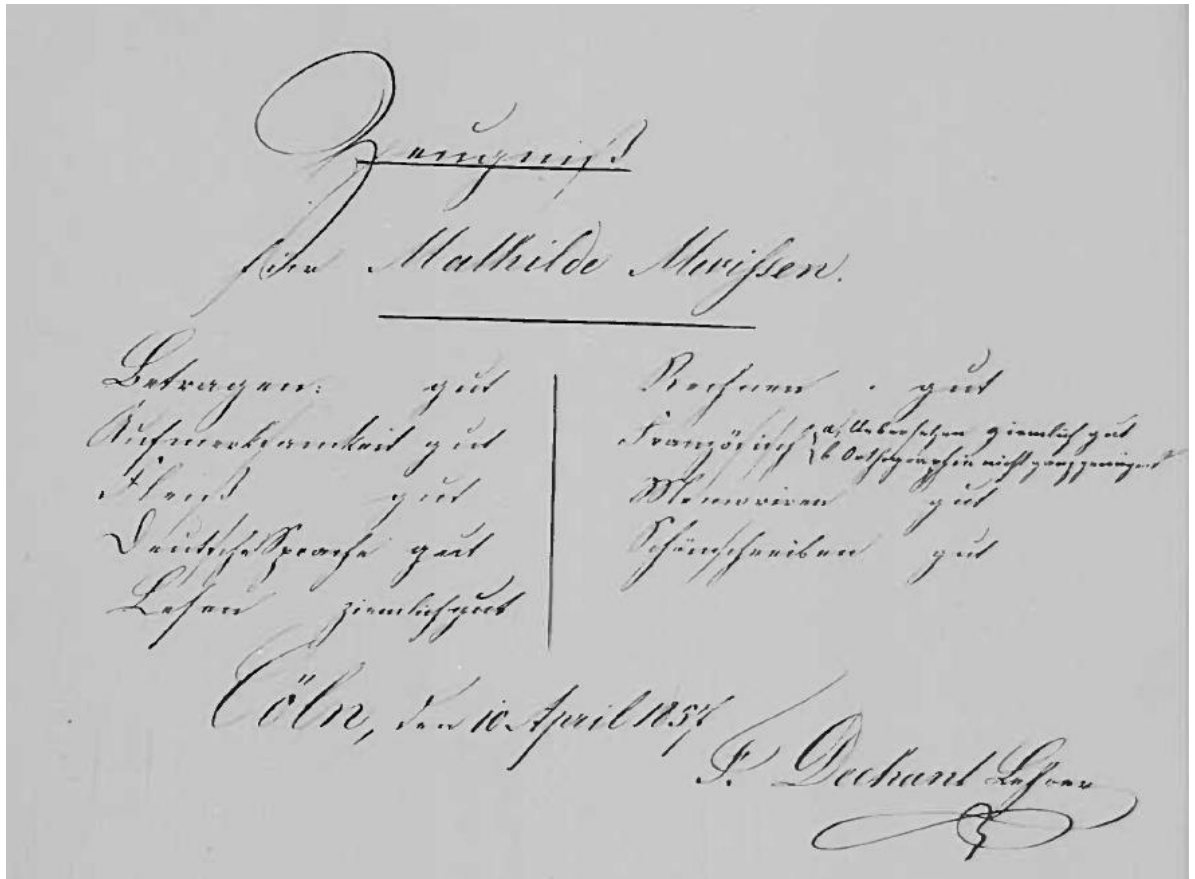 Zeugniß
für Mathilde Mevissen.
Betragen: gut
Aufmerksamkeit gut
Fleiß gut
Deutsche Sprache gut
Lesen ziemlich gut
Rechnen . gut
Französisch a, Uebersetzen ziemlich gut
b Orthographie nicht ganz
Memoriren gut
Schönschreiben gut
Cöln, den 10 April 1857
F. Dechant Lehrer